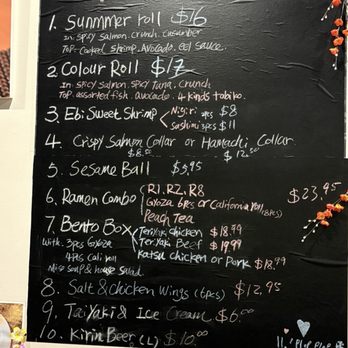 1. Summmer roll $16
In: spicy salmon, crunch, cucumber
Top: cooked shrimp, Avocado, eel sauce.
2. Colour Roll $17
In: spicy salmon, spicy tuna, crunch
Top: assorted fish, avocado, 4 kinds tobiko.
3. Ebi Sweet Shrimp Nigiri 2pcs $8
Sashimi 3pcs $11
4. Crispy Salmon Collar or Hamachi Collar
$8.50 $12.50
5. Sesame Ball $5.95
6. Ramen Combo R1, R2, R8 $23.95
Gyoza 6pcs or California roll (8pcs)
Peach Tea
7. Bento Box Teriyaki chicken $18.99
With: 3pcs Gyoza Teriyaki Beef $19.99
4pcs Cali roll Katsu chicken or Pork $18.99
Miso soup & house salad.
8. Salt & chicken wings (6pcs) $12.95
9. Taiyaki & Ice Cream $6.00
10. Kirin Beer (L) $10.00